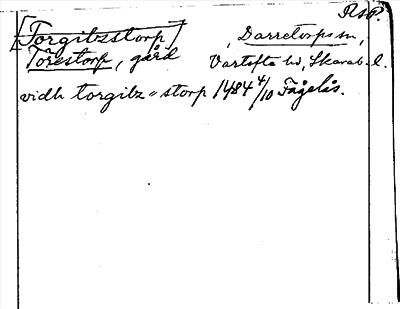 RAP.
[Torgilzstorp]
Torestorp, gård
, Darretorps sn,
Vartofta hd, Skarab. l.
vidh torgilz = storp 1484 4/10 Fågelås.